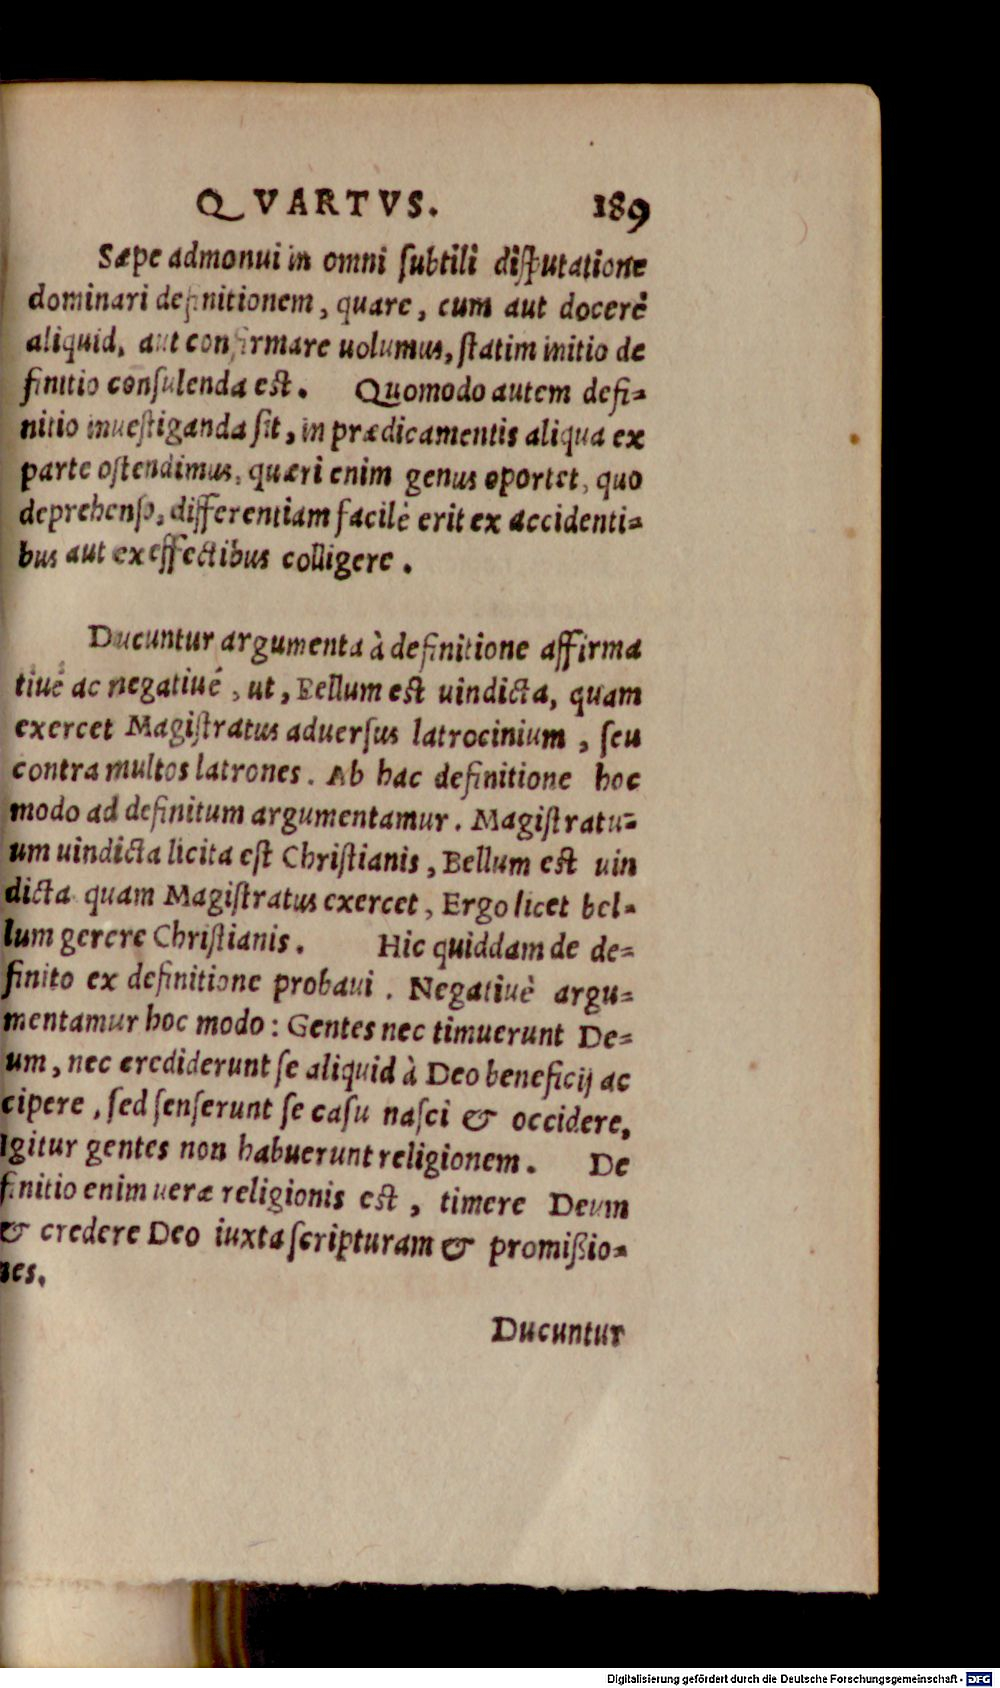 QVARTVS. 189
Sæpe admonui in omni ſubtili diſputatione
dominari definitionem, quare, cum aut docere
aliquid, aut confirmare uolumus, ſtatim initio de
finitio conſulenda eſt. Quomodo autem defi-
nitio inueſtiganda ſit, in prædicamentis aliqua ex
parte oſtendimus, quæri enim genus oportet, quo
deprehenſo, differentiam facilè erit ex accidenti-
bus aut ex effectibus colligere.
Ducuntur argumenta à definitione affirma
tiuè ac negatiué, ut, Bellum eſt uindicta, quam
exercet Magiſtratus aduerſus latrocinium, ſeu
contra multos latrones. Ab hac definitione hoc
modo ad definitum argumentamur. Magiſtratu-
um uindicta licita eſt Chriſtianis, Bellum eſt uin
dicta quam Magiſtratus exercet, Ergo licet bel-
lum gerere Chriſtianis. Hic quiddam de de-
finito ex definitione probaui. Negatiuè argu-
mentamur hoc modo: Gentes nec timuerunt De-
um, nec crediderunt ſe aliquid à Deo beneficij ac
cipere, ſed ſenſerunt ſe caſu naſci & occidere,
Igitur gentes non habuerunt religionem. De
finitio enim ueræ religionis eſt, timere Deum
& credere Deo iuxta ſcripturam & promißio-
nes.
Ducuntur
Digitalisierung gefördert durch die Deutsche Forschungsgemeinschaft - DFG